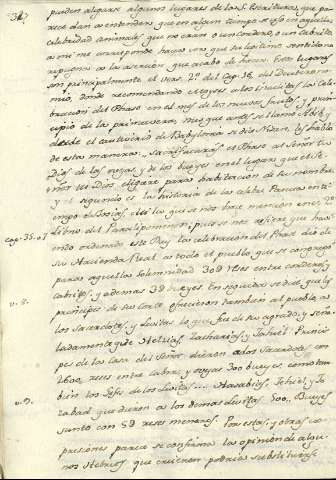 317
pueden alegarse algunos lugares de la S. Escritura, que pa-
rece dan a entender que en algun tiempo se usó en aquella
celebridad animales que no eran ó un cordero, ó un cabrito
a mi me corresponde hacer ver que su legitimo sentido no
repugna a la asercion que acabo de hacer. Estos lugares
son principalmente el vers. 2º del Cap. 16. del Deuterono-
mio, donde recomendando Moyses a los Israelitas la cele-
bracion del Phase en el mes de los nuevos frutos, y prin-
cipio de la primavera, que antes se llamó Abib, y
desde el cautiverio de Babylonia se dijo Nisan, les habla
de esta manera: sacrificarás el Phase al Señor tu
Dios de las ovejas, y de los bueyes en el lugar que el Se-
ñor tu Dios eligiere para habitacion de su nombre.
y el segundo es la historia de la celebre Pascua en ti-
empo de Josias, de la que se nos hace mencion en el
libro del Paralipomenon, pues se nos refiere que havi-
cap. 35. v. 7
endo ordenado este Rey la celebracion del Phase dió de
su Hacienda Real a todo el pueblo que se congregó
para aquella solemnidad 30 reses entre corderos, y
cabritos, y ademas 3 bueyes. En seguida se dice que los
v. 8.
principes de su corte ofrecieron tambien al pueblo, a
los Sacerdotes, y Levitas lo que fue de su agrado, y seña-
ladamente que Helcias, Zacharias, y Jahiel Princi-
pes de la casa del Señor dieron a los Sacerdotes
2600. reses entre cabras, y ovejas 300 bueyes como tam-
v. 9.
bien los Gefes de los Levitas Hasabias, Jehiel, y Jo-
zabad que dieron a los demas Levitas 500. Bueyes
junto con 5 reses menores. Por estas, y otras ex-
presiones parece se confirma la opinion de algu-
nos Hebreos, que creieron podria substituirse